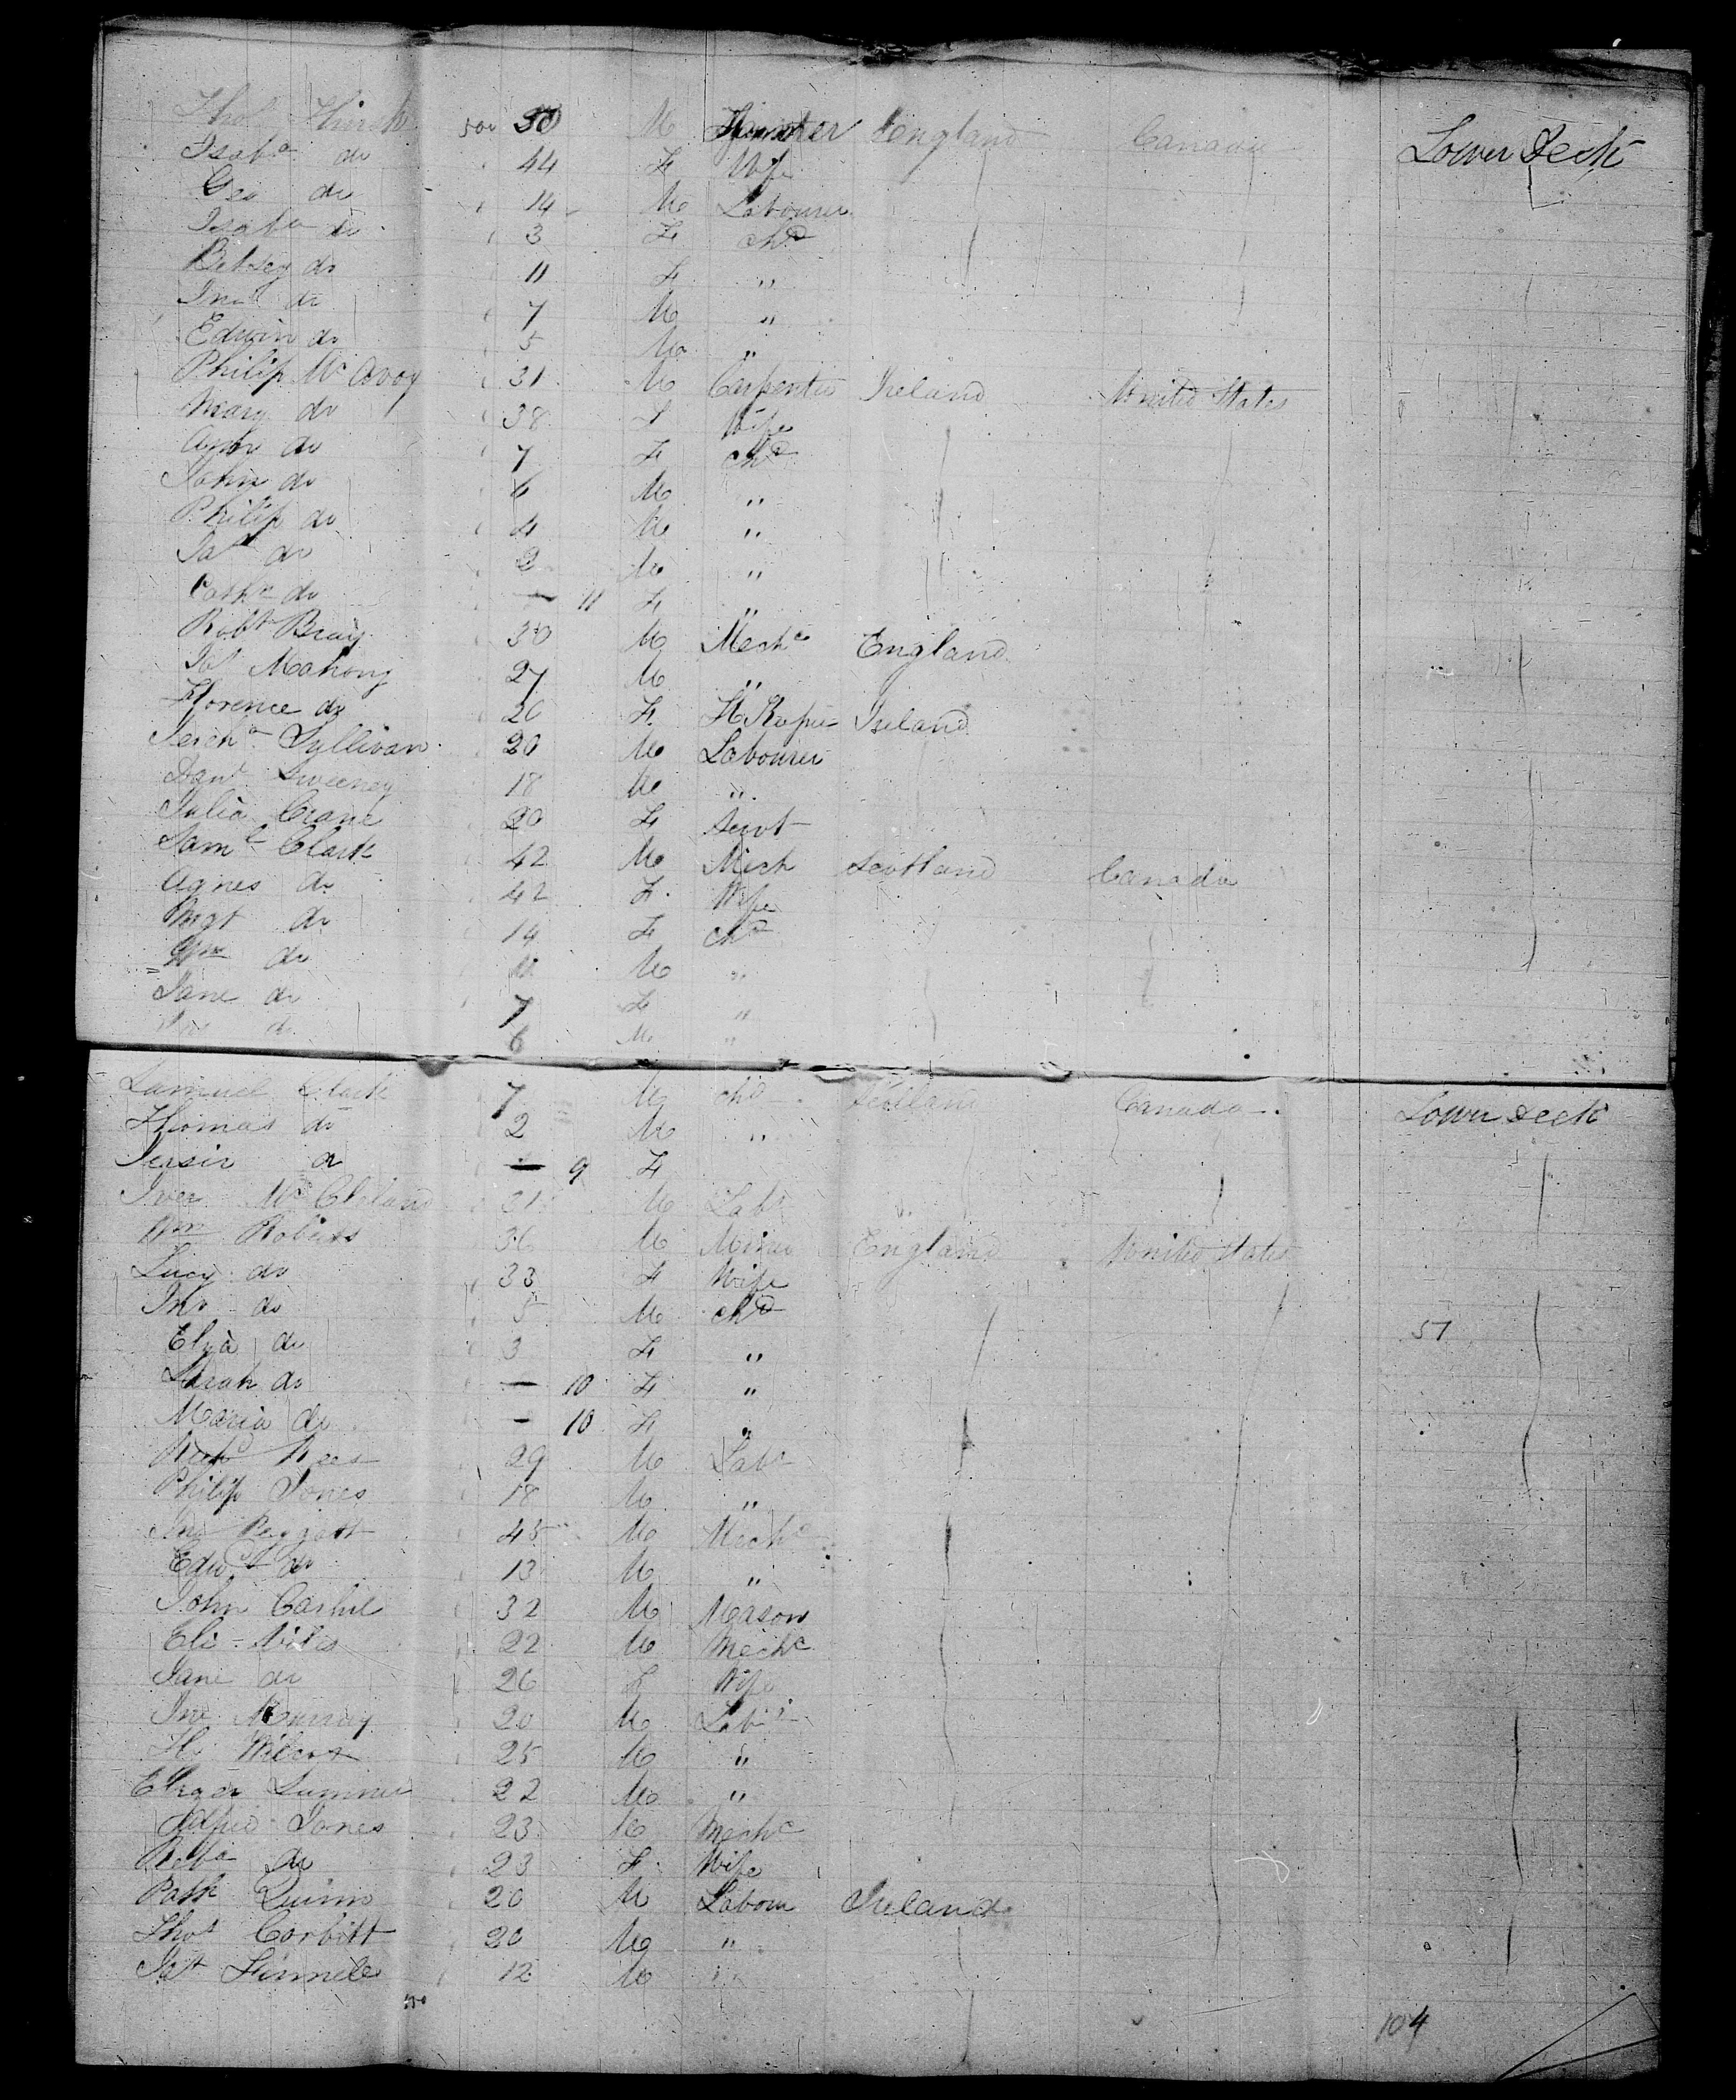 Thos Hirsch 500 50 M England Canada Lower Deck
Isaba do 44 F Wife
Geo do 14 M Labourer
Isaba do 3 F chd
Betsey do 11 F "
Jno do 7 M "
Edwin do 5 M "
Philip McAvoy 31 M Carpenter Ireland United States
Mary do 38 F Wife
Ann do 7 F chd
John do 6 M "
Philip do 4 M "
Jas do 2 M "
Cathn do — 11 F "
Robt Bray 30 M Mechc England
Jas Mahony 27 M "
Florence do 20 F H Keeper Ireland
Sullivan 20 M Labourer
Danl Sweeney 18 M "
Julia Crane 20 F Servt
Saml Clark 42 M Mech Scotland Canada
Agnes do 42 F Wife
Mgt do 14 F chd
Wm do 11 M "
Jane do 7 F "
Jas do 6 M "
Samuel Clark 7 M chd Scotland Canada Lower Deck
Thomas do 2 M "
Jessie do — 9 F
Iver McCleland 31 M Labr
Wm Roberts 36 M Miner England United States
Lucy do 33 F Wife
Jno do 5 M chd
Eliza do 3 F " 51
Sarah do — 10 F "
Maria do — 10 F "
Richd Rees 29 M Labr
Philip Jones 18 M "
Jno Piggott 45 M Mechc
Edwd do 13 M "
John Carhil 32 M Mason
Eli Niles 22 M Mechc
Jane do 26 F Wife
Jno Murray 20 M Labr
Hy Wilcox 25 M "
Sumner 22 M "
Alfred Jones 23 M Mechc
Reba do 23 F Wife
Patk Quinn 20 M Labour Ireland
Thos Corbitt 20 M "
12 M "
104